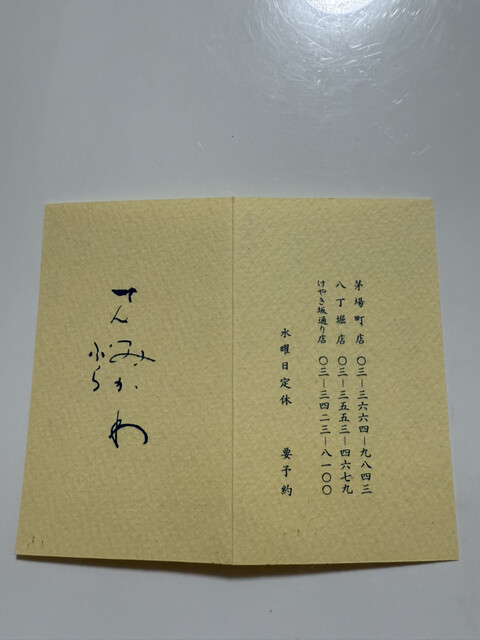 茅場町店 〇三―三六六四―九八四三
八丁堀店 〇三―三五五三―四六七九
けやき坂通り店 〇三―三四二三―八一〇〇
水曜日定休 要予約
てん
ぷら
みかわ